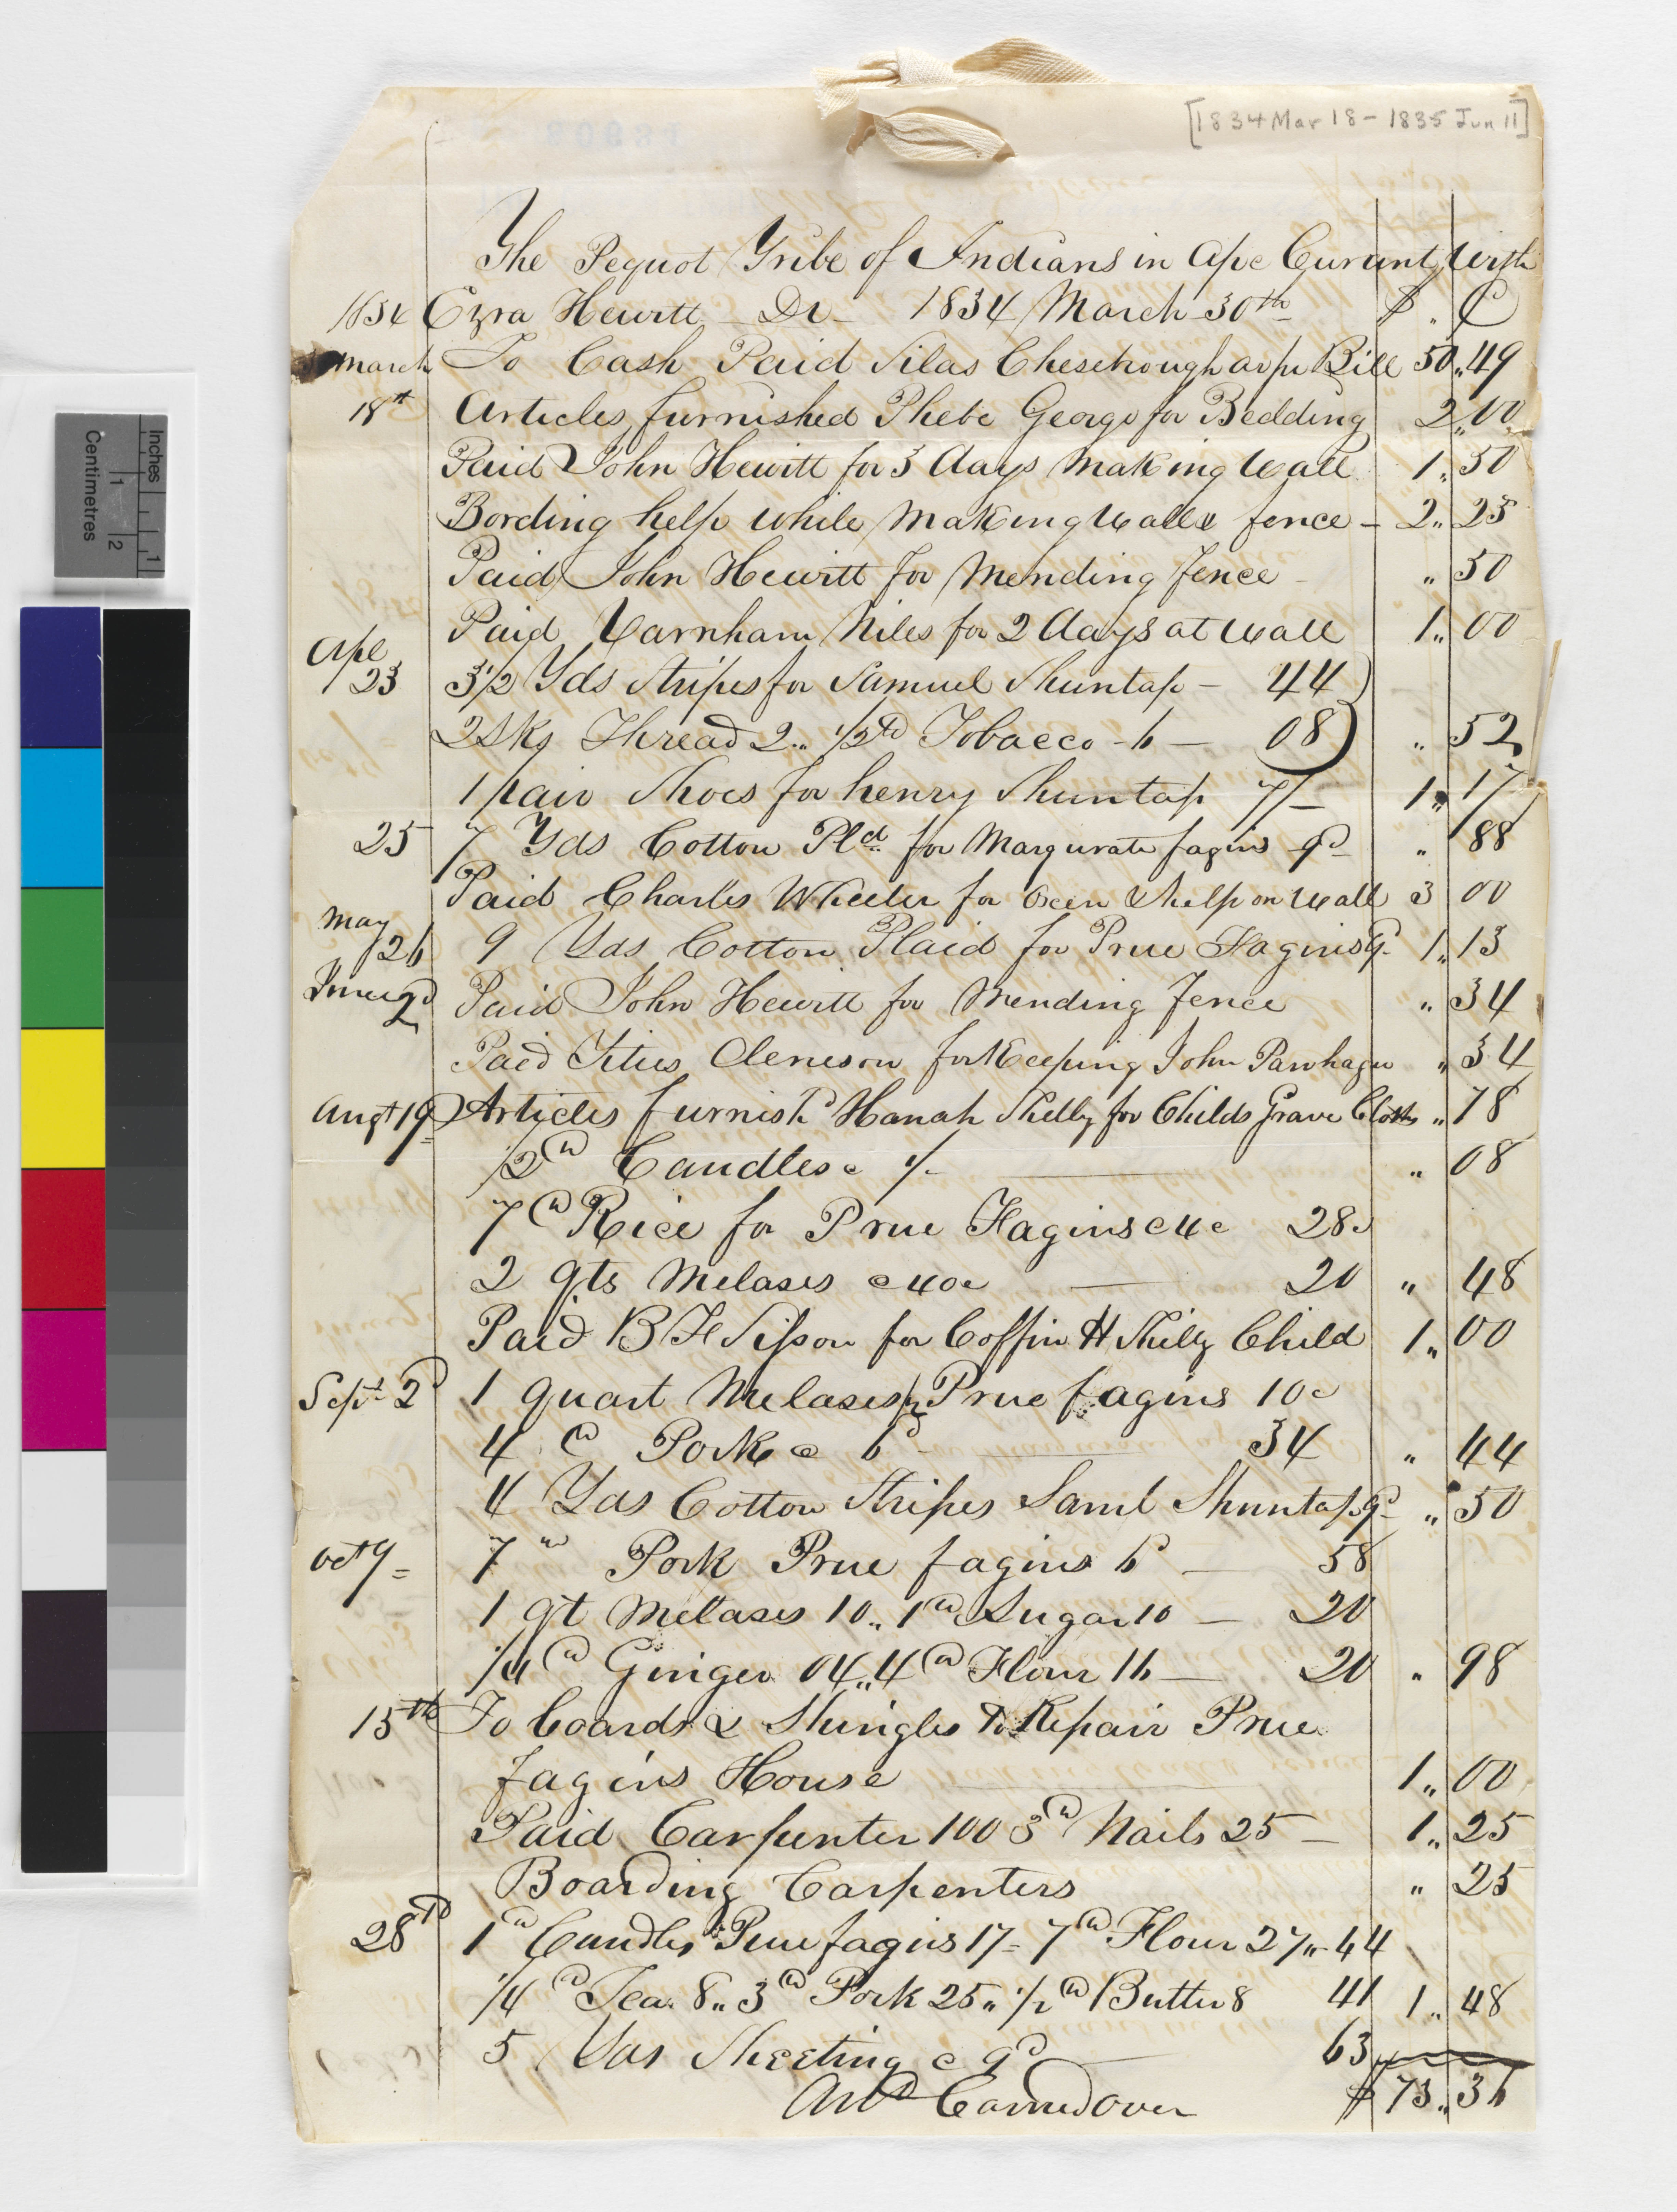 [1834 Mar 18 - 1835 Jun 11]
The Pequot Tribe of Indians in a/c Curant with
1834 Ezra Hewitt Dr 1834 March 30th $ ,, C
March To Cash Paid Silas Chesebrough as pr Bill 50,,49
18th Articles furnished Phebe George for Bedding 2,,00
Paid John Hewitt for 3 days Making Wall 1,,50
Bording help while Making Wall & fence - 2,,25
Paid John Hewitt for Mending Fence - ,,50
Paid Varnham Niles for 2 days at wall 1,,00
Apl 23 3 1/2 Yds Stripes for Samuel Shuntap - 44
2 Sks Thread 2,, 1/2 Tobacco - 6 - 08 ,, 52
1 pair Shoes for henry Shuntap 7/- 1,,17
25 7 Yds Cotton Pld for Margurate fagins 9d ,, 88
Paid Charles Wheeler for Oxen & help on wall 3 00
May 26 9 Yds Cotton Plaid for Prue Fagins 9d 1,,13
June 2d Paid John Hewitt for Mending Fence ,,34
Paid Titus Deneson for Keeping John Pawhague ,,34
Augt 19 Articles furnishd Hanah Shelly for Childs Grave Cloths ,,78
1/2 lb Candles @ 1/- ,, 08
7 lb Rice for Prue Fagins @ 4c 28
2 qts Melases @ 40c 20 ,, 48
Paid B F Sisson for Coffin H Shelly Child 1,,00
Sept 2d 1 quart Melases for Prue fagins 10c
4 lb Pork @ 6d 34 ,, 44
4 Yds Cotton Stripes Saml Shuntap 9d ,,50
Oct 9 7 lb Pork Prue fagins 6d - 58
1 qt Melases 10,, 1 lb Sugar 10 - 20
1/4 lb Ginger 04,, 4 lb Flour 16 - 20 ,, 98
15th To Boards & Shingles To Repair Prue
fagins House 1,,00
Paid Carpenter 100 3d Nails 25 - 1,,25
Boarding Carpenters ,, 25
28th 1 lb Candles Prue fagins 17 - 7 lb Flour 27,, 44
1/4 lb Tea 8,, 3 lb Pork 25,, 1/2 lb Butter 8 41 1,,48
5 Yds Sheeting @ 9d 63
Amt Carried Over $ 73,,36
Inches 1
Centimetres 1 2